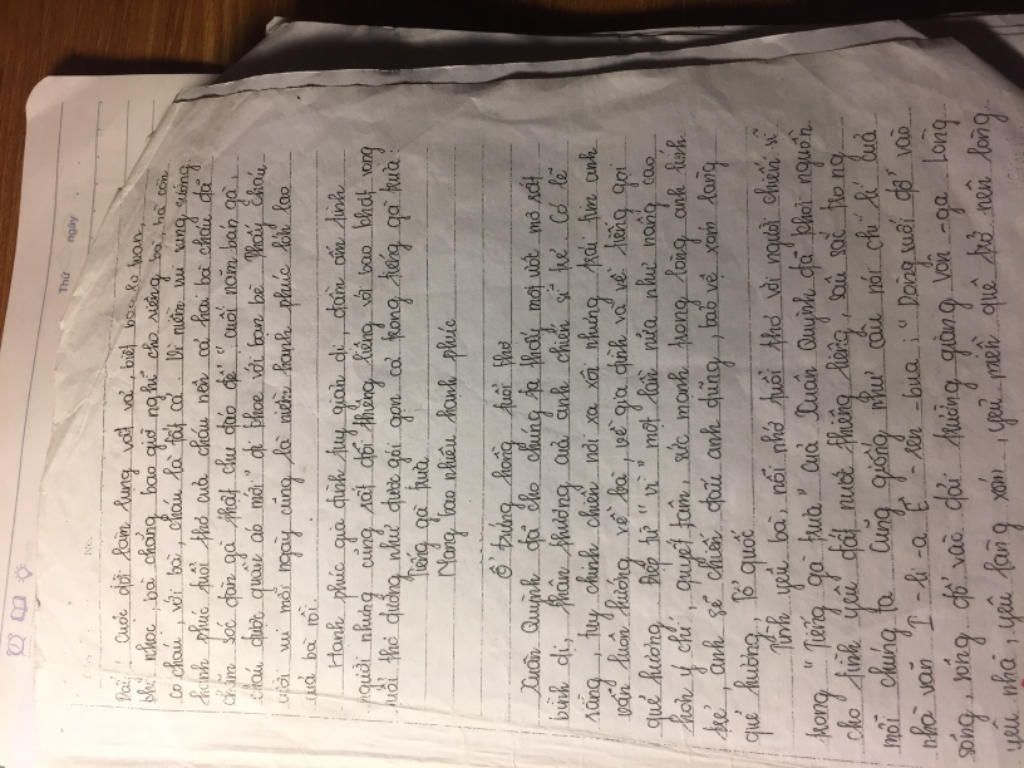 Thứ ngày
No.
bãi, cuộc đời lam lung vất vả, biết bao lo toan,
phê nhọc, bà chẳng bao giờ nghĩ cho riêng bà, mà còn
có cháu, với bà, cháu là tất cả. Vì niềm vui sung sướng
hạnh phúc tuổi thơ của cháu nên cả hai bà cháu đã
chăm sóc đàn gà thật chu đáo để " cuối năm bán gà,
cháu được quần áo mới " đi khoe với bạn bè. Thấy cháu
cười vui mỗi ngày cũng là niềm hạnh phúc lớn lao
của bà rồi.
Hạnh phúc gia đình tuy giản dị, đầm ấm tình
người nhưng cũng rất đỗi thiêng liêng với bao khát vọng
tuổi thơ dường như được gói gọn cả trong tiếng gà trưa:
Tiếng gà trưa
Mang bao nhiêu hạnh phúc
Ổ trứng hồng tuổi thơ
Xuân Quỳnh đã cho chúng ta thấy mơ ước mơ rất
bình dị, thân thương của anh chiến sĩ trẻ. Có lẽ
rằng, tuy chinh chiến nơi xa xôi nhưng trái tim anh
vẫn luôn hướng về bà, về gia đình và về tiếng gọi
quê hương. Điệp từ " vì ", một lần nữa như nâng cao
hơn ý chí, quyết tâm, sức mạnh trong lòng anh lính
trẻ, anh sẽ chiến đấu anh dũng, bảo vệ xóm làng
quê hương, Tổ quốc
Tình yêu bà, nỗi nhớ tuổi thơ với người chiến sĩ
trong " Tiếng gà trưa " của Xuân Quỳnh đã khơi nguồn
cho tình yêu đất nước thiêng liêng, sâu sắc trong
mỗi chúng ta. Cũng giống như câu nói chí lí của
nhà văn I-li-a Ê-ren-bua: " Dòng suối đổ vào
sông, sông đổ vào dải trường giang Vôn-ga. Lòng
yêu nhà, yêu làng xóm, yêu miền quê trở nên lòng